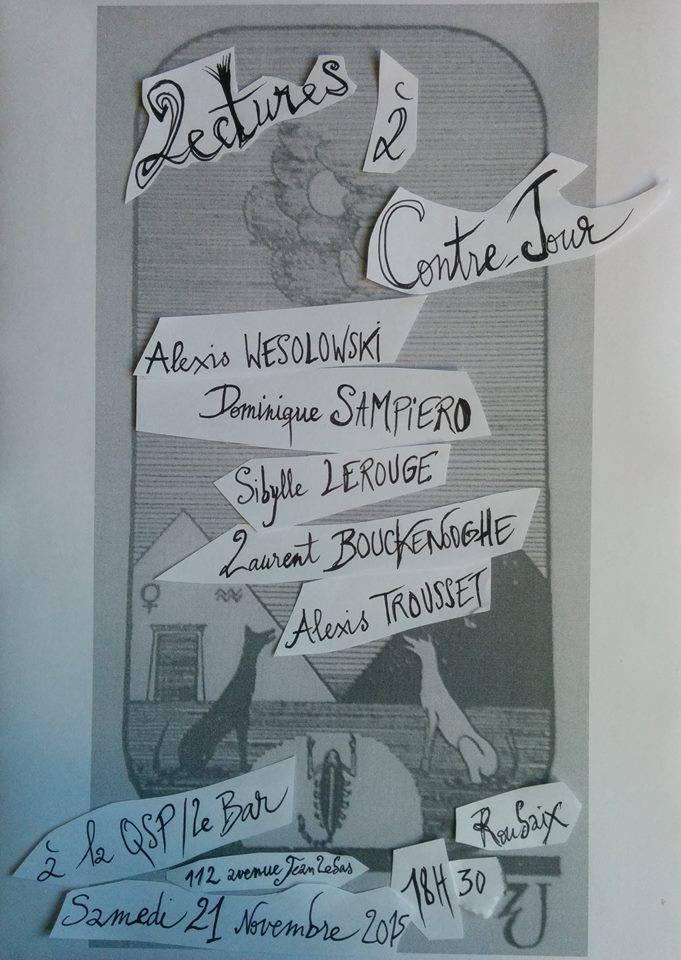 Lectures
à
Contre-Jour
Alexis WESOLOWSKI
Dominique SAMPiERO
Sibylle LEROUGE
Laurent BOUCKENOOGHE
Alexis TROUSSET
à la QSP/Le Bar
Roubaix
112 avenue Jean Lebas
18H30
Samedi 21 Novembre 2015